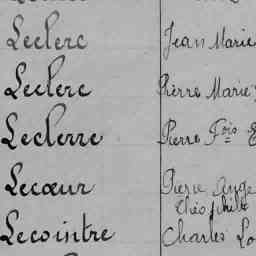 Leclerc Jean Marie
Leclerc Pierre Marie
Leclerre Pierre Fois
Lecœur Pierre Ange
Théophile
Lecointre Charles